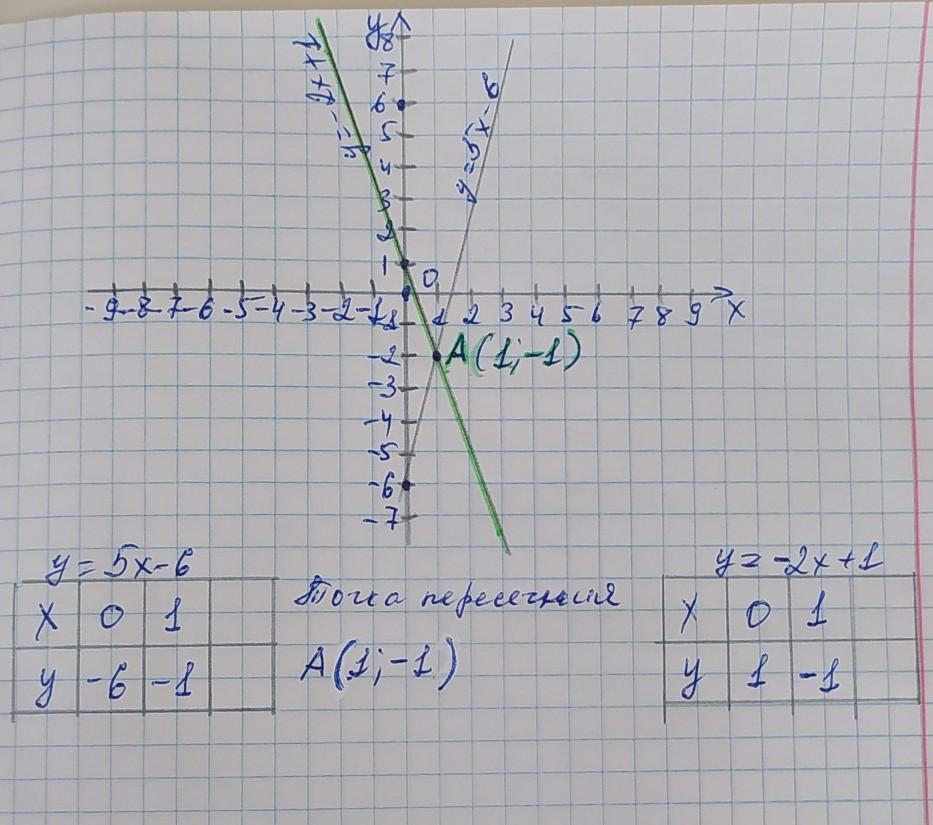 y
8
7
6
5
4
3
2
1
0
y = -2x+1
y = 5x-6
-9 -8 -7 -6 -5 -4 -3 -2 -1 1 2 3 4 5 6 7 8 9 x
-1
-2
A(1;-1)
-3
-4
-5
-6
-7
y = 5x-6
x 0 1
y -6 -1
Точка пересечния
A(1;-1)
y = -2x+1
x 0 1
y 1 -1